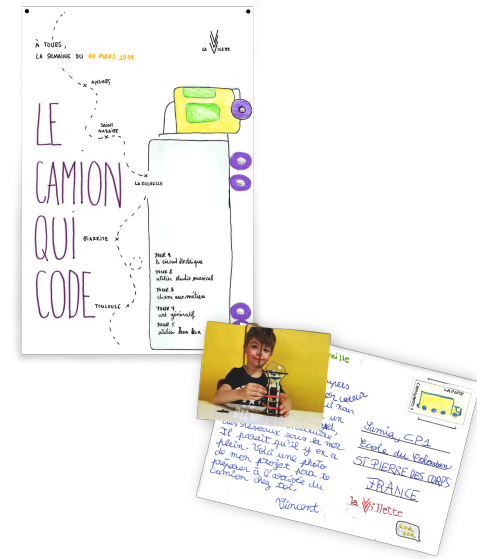 À TOURS,
LA SEMAINE DU 18 MARS 2019
LA VILLETTE
ANGERS
SAINT
NAZAIRE
LA ROCHELLE
BIARRITZ
TOULOUSE
LE
CAMION
QUI
CODE
JOUR 1
le circuit électrique
JOUR 2
atelier studio musical
JOUR 3
JOUR 4
art génératif
JOUR 5
atelier
eille
un
des réseaux sous la mer.
Il paraît qu'il y en a
plein. Voilà une photo
de mon projet pour te
préparer à l'arrivée du
camion chez toi.
Vincent
LA POSTE
Samia, CP1
École du Colombier
ST PIERRE DES CORPS
FRANCE
la Villette